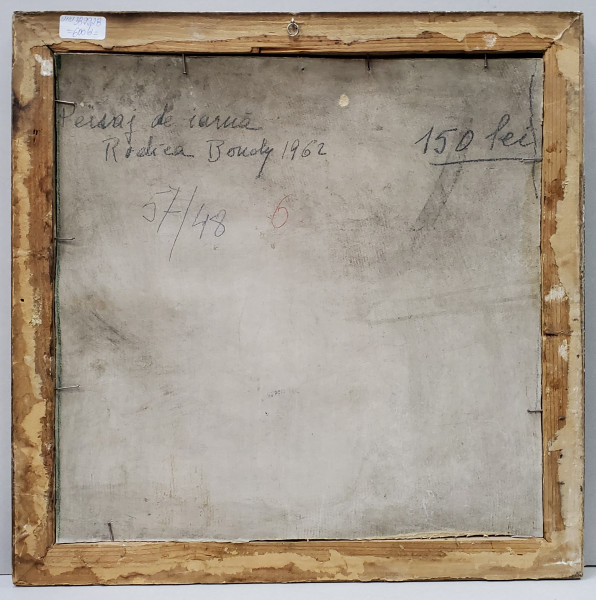 Peisaj de iarnă
Rodica Bondy 1962
150 lei
57/48
6